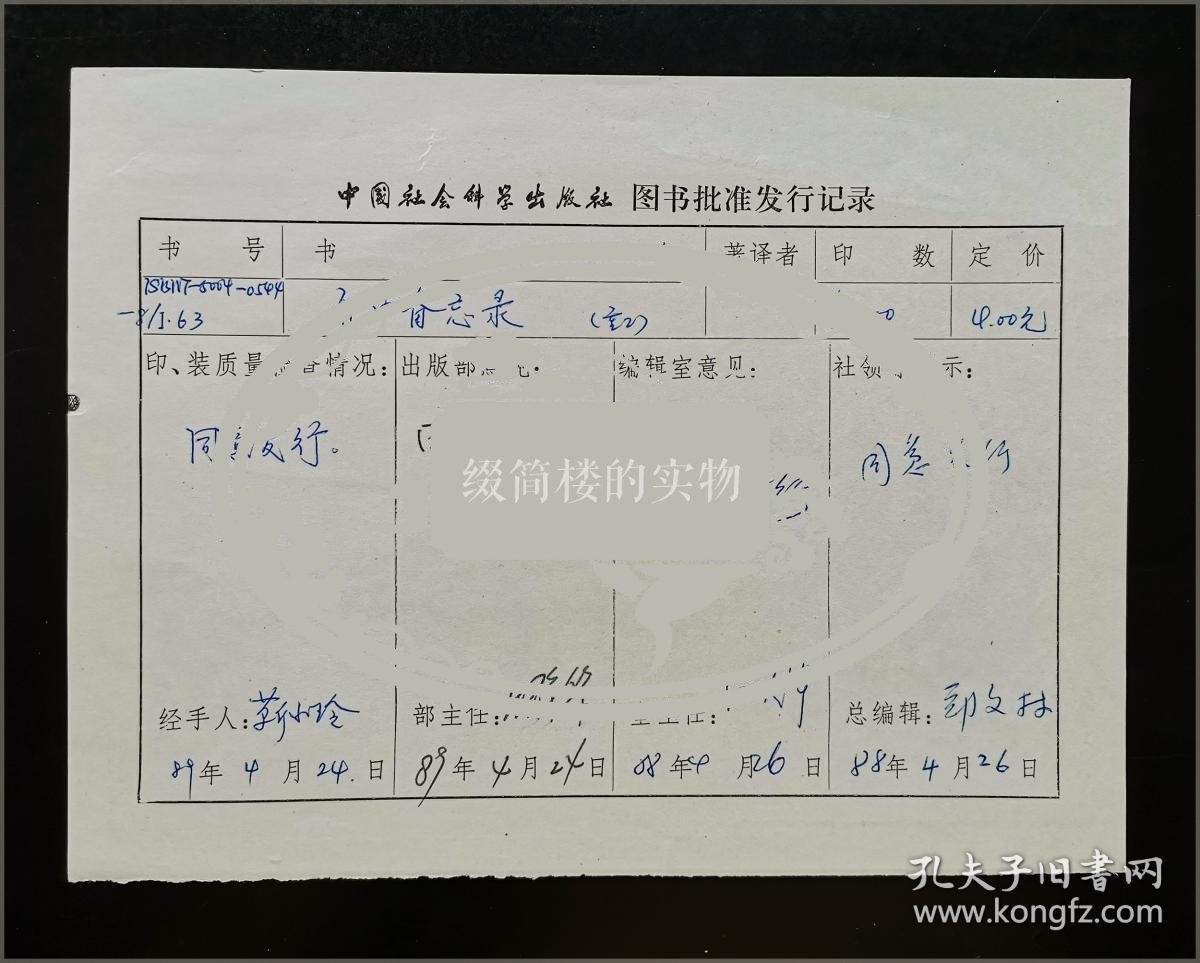 中國社会科学出版社 图书批准发行记录
书 号 书 著译者 印 数 定 价
ISBN7-5004-0544
-8/I.63 备忘录 4.00元
印、装质量 情况: 出版部 编辑室意见: 社领 示:
同意发行。 同意 行
缀简楼的实物
经手人:靳小玲 部主任: 主任: 总编辑:郑文林
89年 4 月 24.日 89年 4月 24日 88年4 月26日 88年 4 月26日
孔夫子旧書网
www.kongfz.com